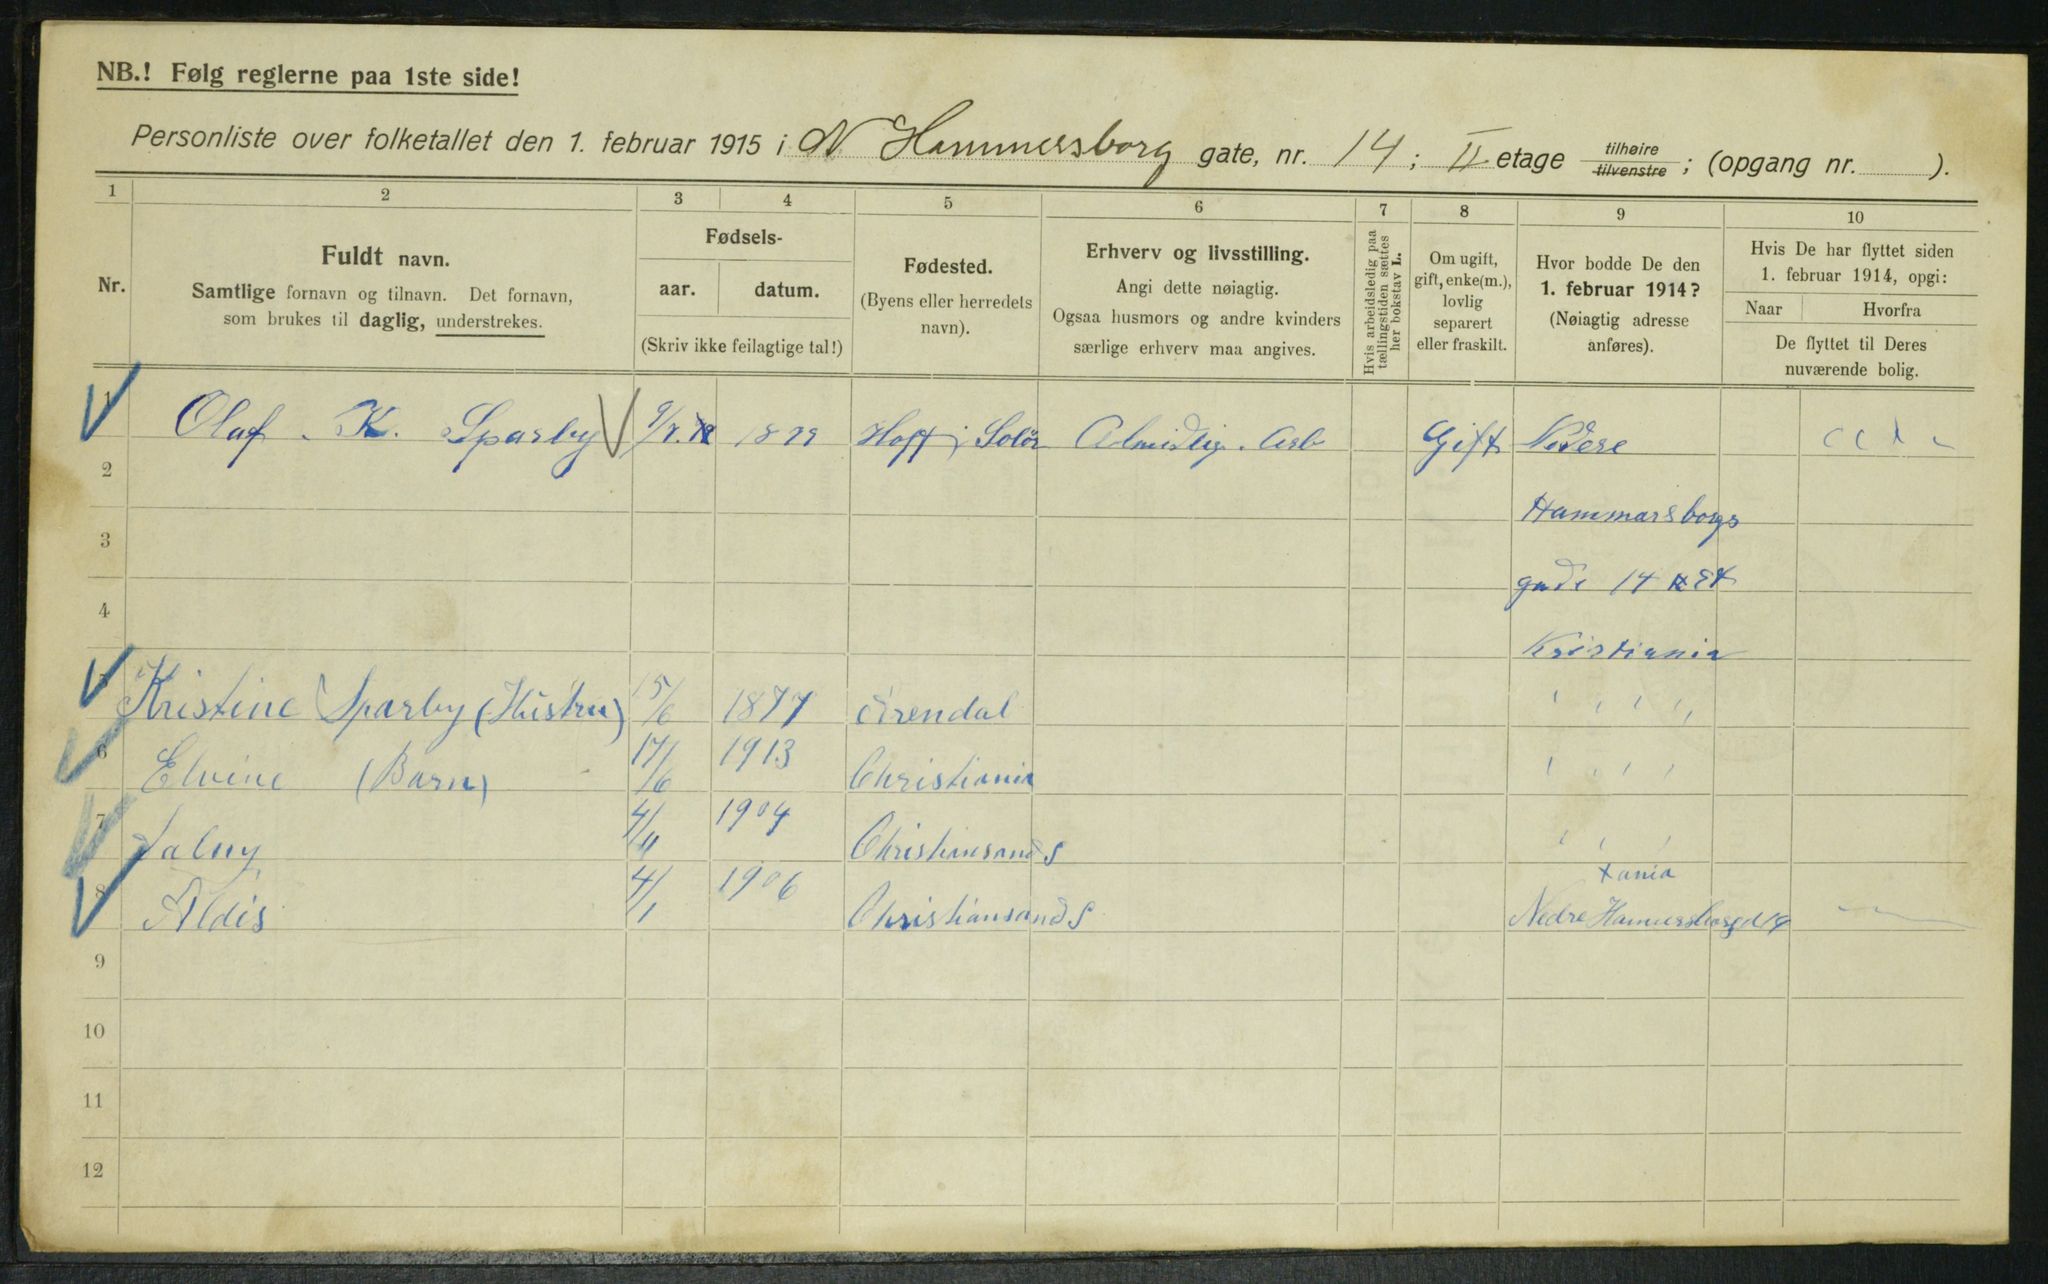 NB.! Følg reglerne paa 1ste side!
Personliste over folketallet den 1. februar 1915 i N Hammersborg gate, nr. 14; II etage tilhøire tilvenstre; (opgang nr. ).
1 2 3 4 5 6 7 8 9 10
Nr.
Fuldt navn.
Samtlige fornavn og tilnavn. Det fornavn,
som brukes til daglig, understrekes.
Fødsels-
aar. datum.
(Skriv ikke feilagtige tal!)
Fødested.
(Byens eller herredets
navn).
Erhverv og livsstilling.
Angi dette nøiagtig.
Ogsaa husmors og andre kvinders
særlige erhverv maa angives.
Hvis arbeidsledig paa
tællingstiden sættes
her bokstav L.
Om ugift,
gift, enke(m.),
lovlig
separert
eller fraskilt.
Hvor bodde De den
1. februar 1914?
(Nøiagtig adresse
anføres).
Hvis De har flyttet siden
1. februar 1914, opgi:
Naar Hvorfra
De flyttet til Deres
nuværende bolig.
1 Olaf . K. Sparby Hoff i Solør Almidlig . Arb Gift Nedere
2 Hammarsborgs
3 gade 14 Et
4 Kristiania
5 Kristine Sparby (Hustru) 15/6 1877 Arendal " " " "
6 Elvine (Barn) 17/6 1913 Christiania " " " "
7 Valny 4/11 1904 Christiansand S " " "
Xania
8 Aldis 4/1 1906 Christiansand S Nedre Hammersborgd 14
9
10
11
12